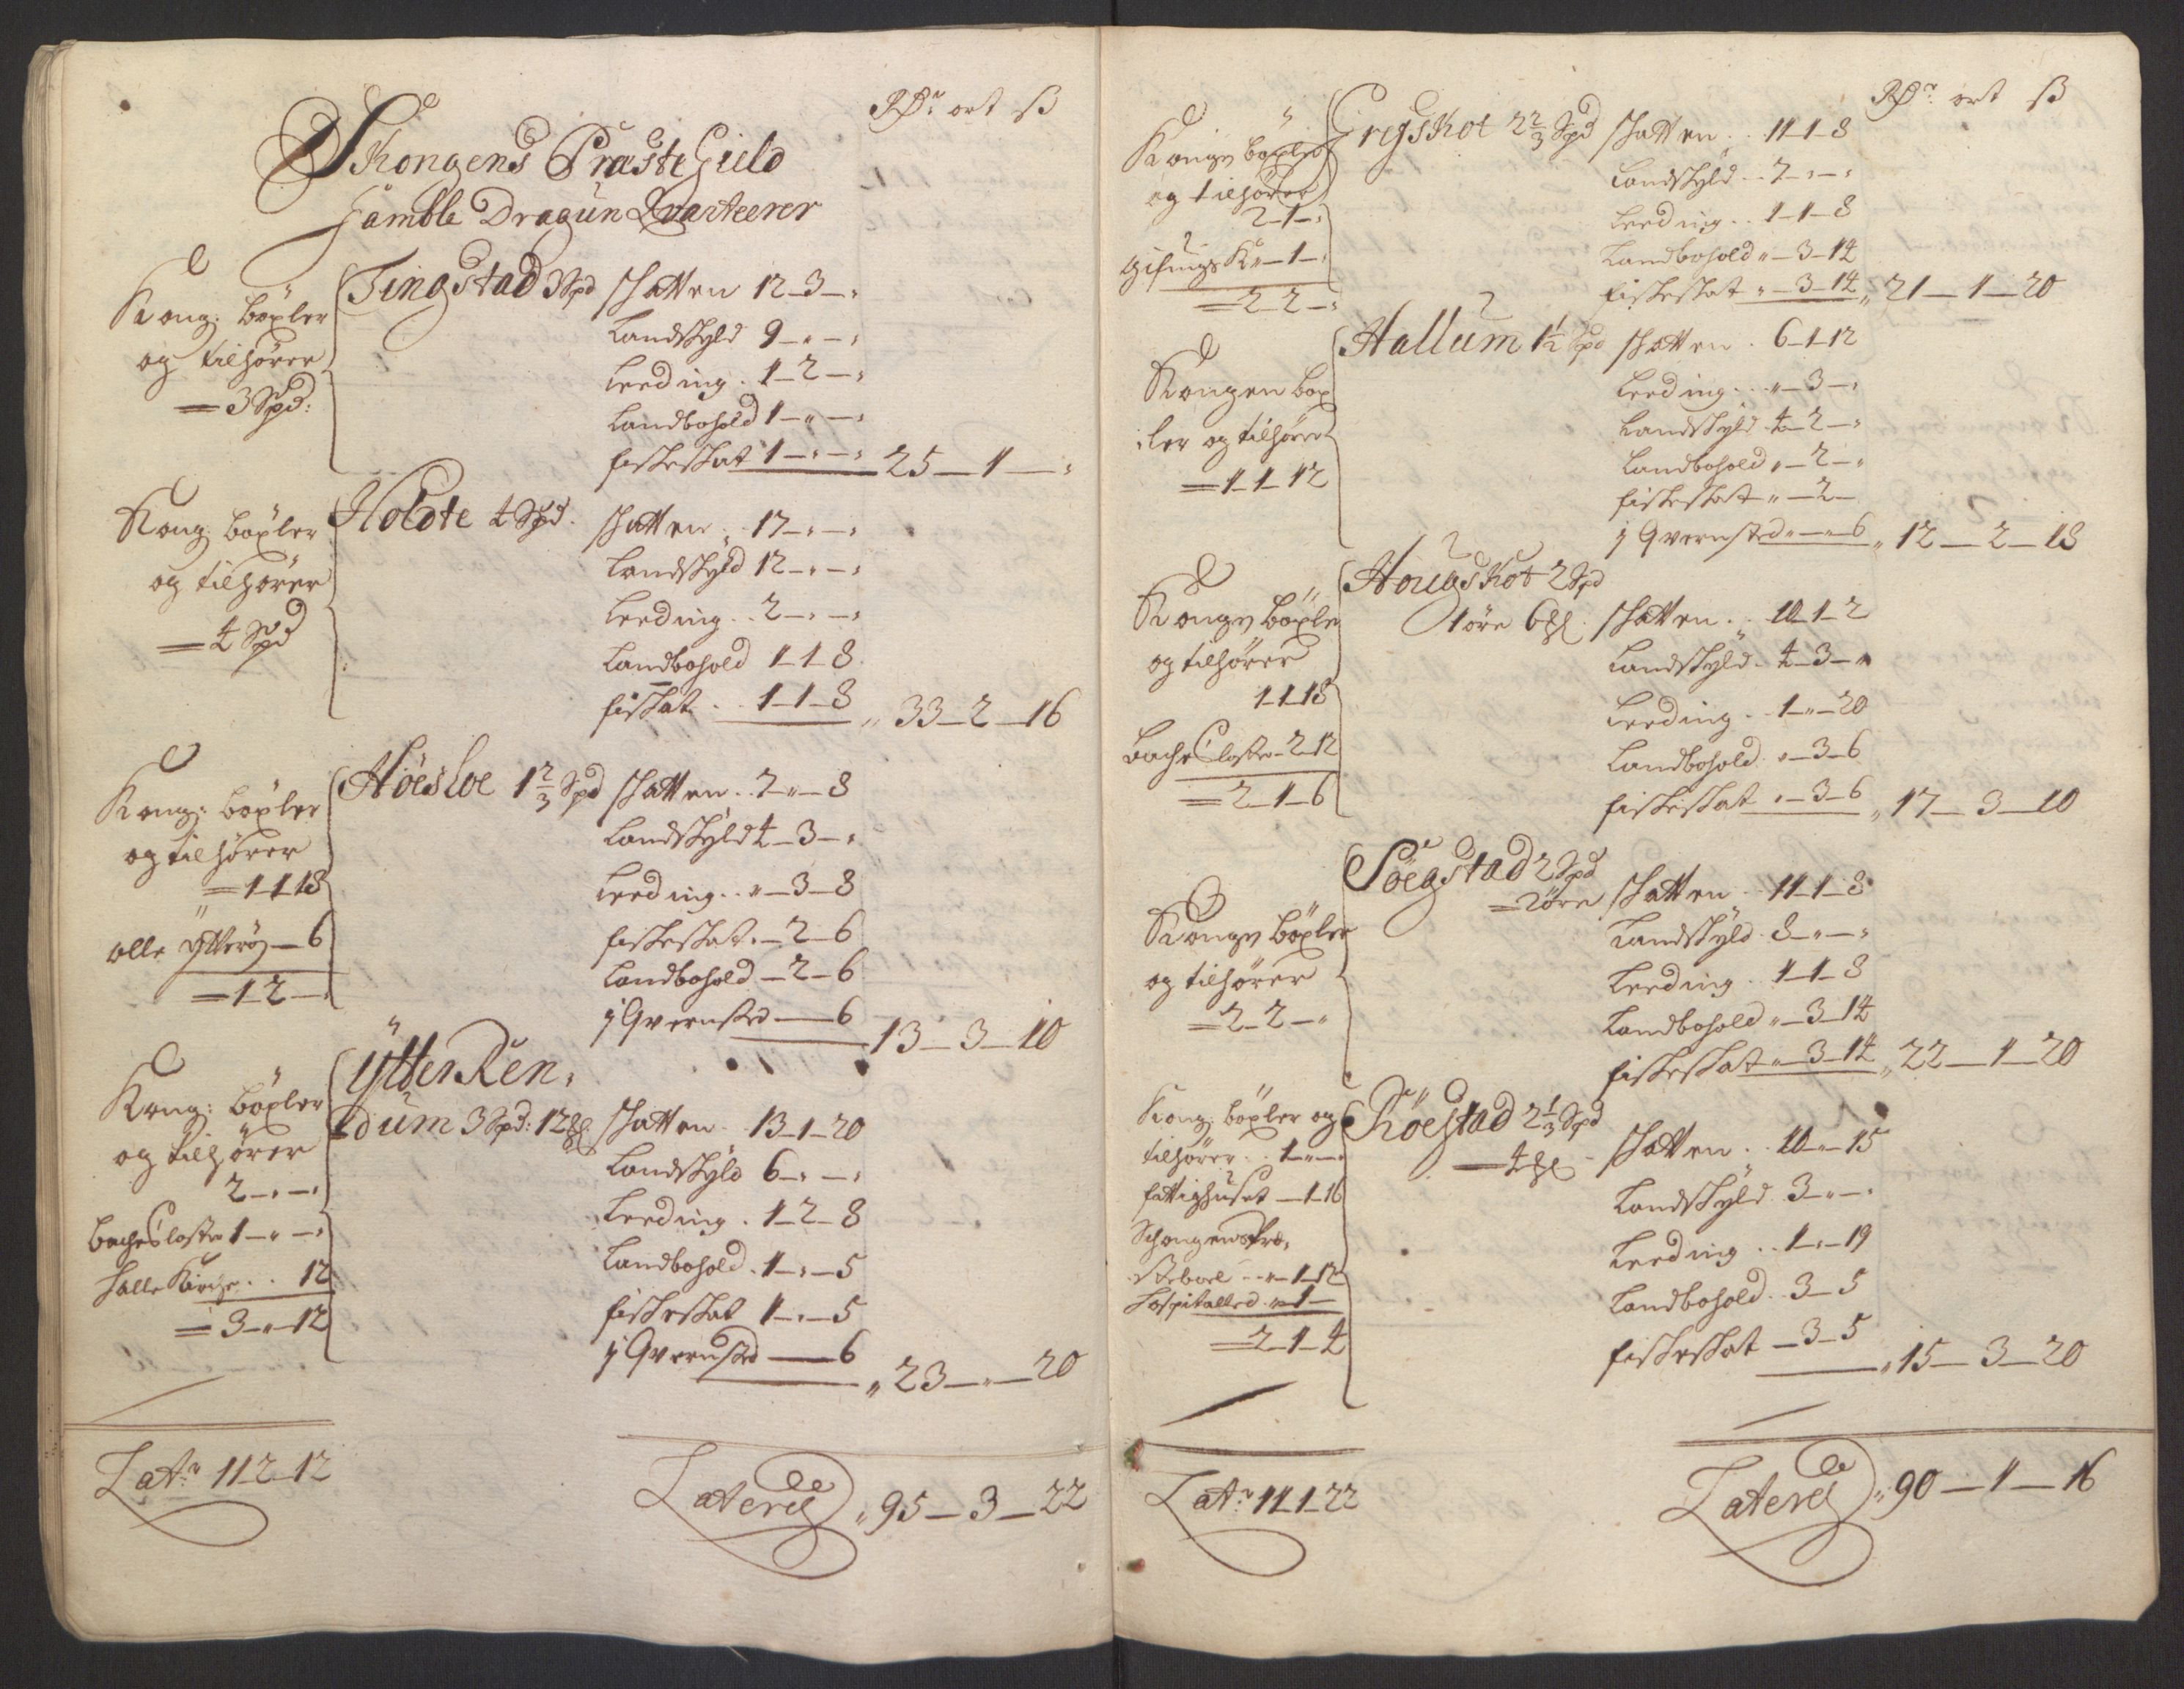 Rdr ort ß
Skongens Præste Gield
Gamble Dragun Qvarteerer
Kong: böxler
og tilhörer
= 3 Spd:
Tingstad 3 Spd Skatten 12 - 3 - "
Landskyld 9 - " - "
Leeding . 1 - 2 - "
Landbohold 1 - " - "
fiskeskat 1 - " - " 25 - 1 - "
Kong: böxler
og tilhörer
= 4 Spd
Holdte 4 Spd. Skatten . 17 - " - "
Landskyld 12 - " - "
Leeding . . 2 - " - "
Landbohold 1 - 1 - 8
fiskat . . 1 - 1 - 8 " 33 - 2 - 16
Kong: böxler
og tilhörer
= 1 - 1 - 18
olle Ytterøy - 6
= 1 - 2 - "
Höesloe 1 2/3 Spd Skatten . . 7 - " - 8
Landskyld 4 - 3 - "
Leeding . . " - 3 - 8
fiskeskat . - 2 - 6
Landbohold - 2 - 6
j Qvernsted - 6 13 - 3 - 10
Kong: böxler
og tilhörer
2 - " - "
Bache Closter 1 - " - "
Salle Kirche . . 12
= 3 - " - 12
Ytter Ren,
dum 3 Spd: 12 Skatten . 13 - 1 - 20
Landskyld 6 - " - "
Leeding . 1 - 2 - 8
Landbohold . 1 - " - 5
fiskeskat 1 - " - 5
j Qvernsted - 6 " 23 - " - 20
Latr 11 - 2 - 12
Lateris " 95 - 3 - 22
Rdr ort ß
Kongen böxler
og tilhörer
2 - 1 - "
- 1 -
= 2 - 2 - "
Gregskot 2 2/3 Spd Skatten . . 11 - 1 - 8
Landskyld . . 7 - " - "
Leeding . . 1 - 1 - 8
Landbohold " - 3 - 14
fiskeskat " - 3 - 14 " 21 - 1 - 20
Kongen böx
ler og tilhörer
= 1 - 1 - 12
Hallum 1 1/2 Spd Skatten . 6 - 1 - 12
Leeding . . " - 3 - "
Landskyld . 4 - 2 - "
Landbohold " - 2 - "
fiskeskat " - 2 -
j Qvernsted " - " - 6 " 12 - 2 - 18
Kongen böxler
og tilhörer
1 - 1 - 18
Bache Closter - 2 - 12
= 2 - 1 - 6
Hougskot 2 Spd
1 öre 6 Skatten . . 10 - 1 - 2
Landskyld . 4 - 3 - "
Leeding . . 1 - " - 20
Landbohold . " - 3 - 6
fiskeskat " - 3 - 6 " 17 - 3 - 10
Kongen böxler
og tilhörer
= 2 - 2 - "
Söegstad 2 Spd
= 2 öre Skatten . . 11 - 1 - 8
Landskyld . 8 - " - "
Leeding . . 1 - 1 - 8
Landbohold " - 3 - 14
fiskeskat " - 3 - 14 " 22 - 1 - 20
Kong: böxler og
tilhörer . . 1 - " - "
fattighuset - 1 - 16
Schongens Præ,
steboel . . " - 1 - 12
Hospitalled . " - 1 -
= 2 - 1 - 4
Röestad 2 1/3 Spd
- 4 Skatten . . 10 - " - 15
Landskyld . 3 - " - "
Leeding . . 1 - " - 19
Landbohold . . 3 - 5
fiskeskat - 3 - 5 " 15 - 3 - 20
Latr 11 - 1 - 22
Lateris " 90 - 1 - 16